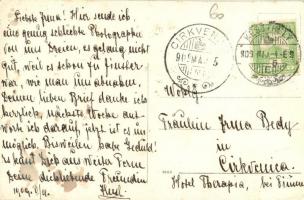 Liebste Irma! Hier sende ich
eine genug schlechte Photographie
von uns Dreien, es gelang nicht
gut, weil es schon zu finster
war, wie man uns abnahm.
Deinen lieben Brief danke ich
herzlich, nächste Woche
worte ich darauf, jetzt ist es mir
nicht möglich. Bis
küsst Dich aus weiter Ferne
Deine dichliebende Freundin
1909
CIRKVENICA
909 MÁJ. 5
909 MÁJ.
Fräulein Irma Bedy
in
Cirkvenica
Hotel Therapia, bei Fiume